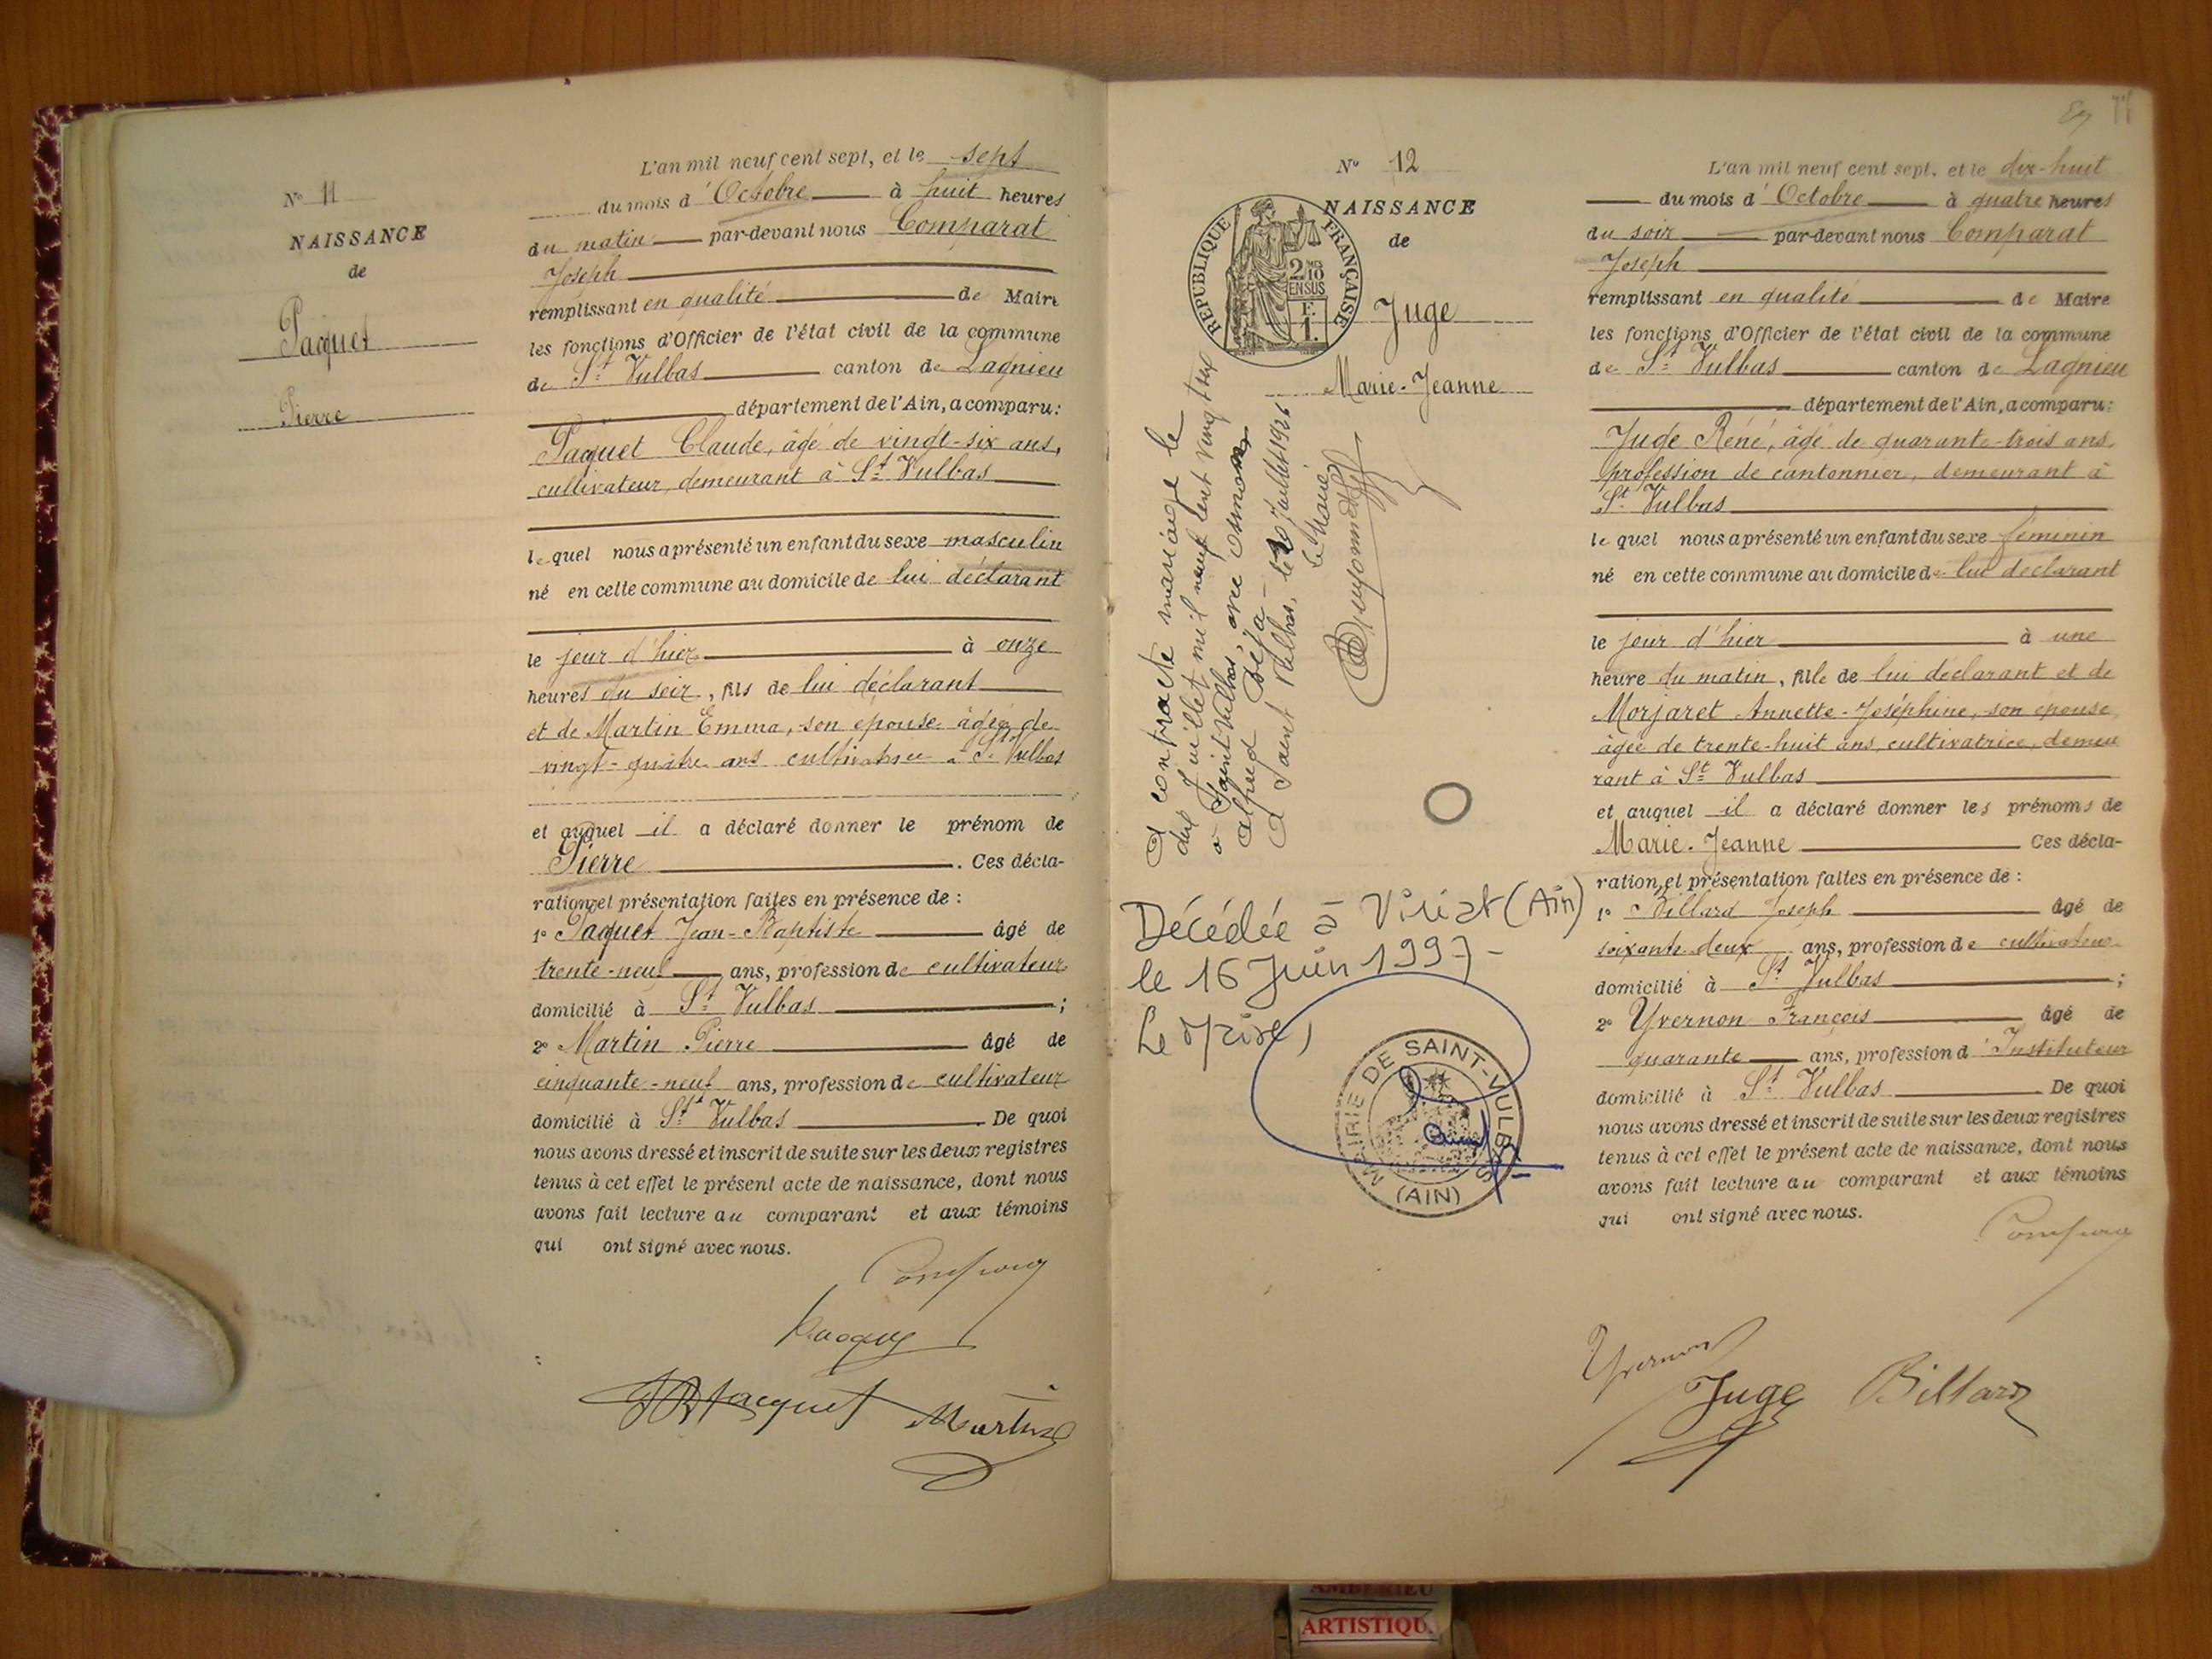 N° 11
NAISSANCE
de
Paquet
Pierre
L'an mil neuf cent sept, et le sept
du mois d'Octobre à huit heures
du matin par-devant nous Comparat
Joseph
remplissant en qualité de Maire
les fonctions d'Officier de l'état civil de la commune
de St Vulbas canton de Lagnieu
département de l'Ain, a comparu:
Paquet Claude, âgé de vingt-six ans,
cultivateur, demeurant à St Vulbas
lequel nous a présenté un enfant du sexe masculin
né en cette commune au domicile de lui déclarant
le jour d'hier à onze
heures du soir, fils de lui déclarant
et de Martin Emma, son épouse âgée de
vingt-quatre ans cultivatrice à St Vulbas
et auquel il a déclaré donner le prénom de
Pierre. Ces décla-
rations et présentation faites en présence de :
1° Paquet Jean-Baptiste âgé de
trente-neuf ans, profession de cultivateur
domicilié à St Vulbas ;
2° Martin Pierre âgé de
cinquante-neuf ans, profession de cultivateur
domicilié à St Vulbas De quoi
nous avons dressé et inscrit de suite sur les deux registres
tenus à cet effet le présent acte de naissance, dont nous
avons fait lecture au comparant et aux témoins
qui ont signé avec nous.
Paquet
JB Pacquet Martin
N° 12
NAISSANCE
de
RÉPUBLIQUE FRANÇAISE
2 10
MES
EN SUS
F.
1.
Juge
Marie-Jeanne
A contracté mariage le
dix Juillet mil neuf cent vingt six
à Saint Vulbas, avec
Alfred
A Saint Vulbas, le 10 Juillet 1926
Le Maire
Décédée à Viriat (Ain)
le 16 Juin 1997-
Le Maire,
MAIRIE DE SAINT-VULBAS
(AIN)
L'an mil neuf cent sept, et le dix-huit
du mois d'Octobre à quatre heures
du soir par-devant nous Comparat
Joseph
remplissant en qualité de Maire
les fonctions d'Officier de l'état civil de la commune
de St Vulbas canton de Lagnieu
département de l'Ain, a comparu:
Juge René, âgé de quarante-trois ans,
profession de cantonnier, demeurant à
St Vulbas
lequel nous a présenté un enfant du sexe féminin
né en cette commune au domicile de lui déclarant
le jour d'hier à une
heure du matin, fille de lui déclarant et de
Morjaret Annette-Joséphine, son épouse
âgée de trente-huit ans, cultivatrice, demeu
rant à St Vulbas
et auquel il a déclaré donner les prénoms de
Marie-Jeanne Ces décla-
ration et présentation faites en présence de :
1° Billard Joseph âgé de
soixante-deux ans, profession de cultivateur
domicilié à St Vulbas ;
2° Yvernon François âgé de
quarante ans, profession d'Instituteur
domicilié à St Vulbas De quoi
nous avons dressé et inscrit de suite sur les deux registres
tenus à cet effet le présent acte de naissance, dont nous
avons fait lecture au comparant et aux témoins
qui ont signé avec nous.
Yvernon
Juge Billard
AMBERIEU
ARTISTIQU